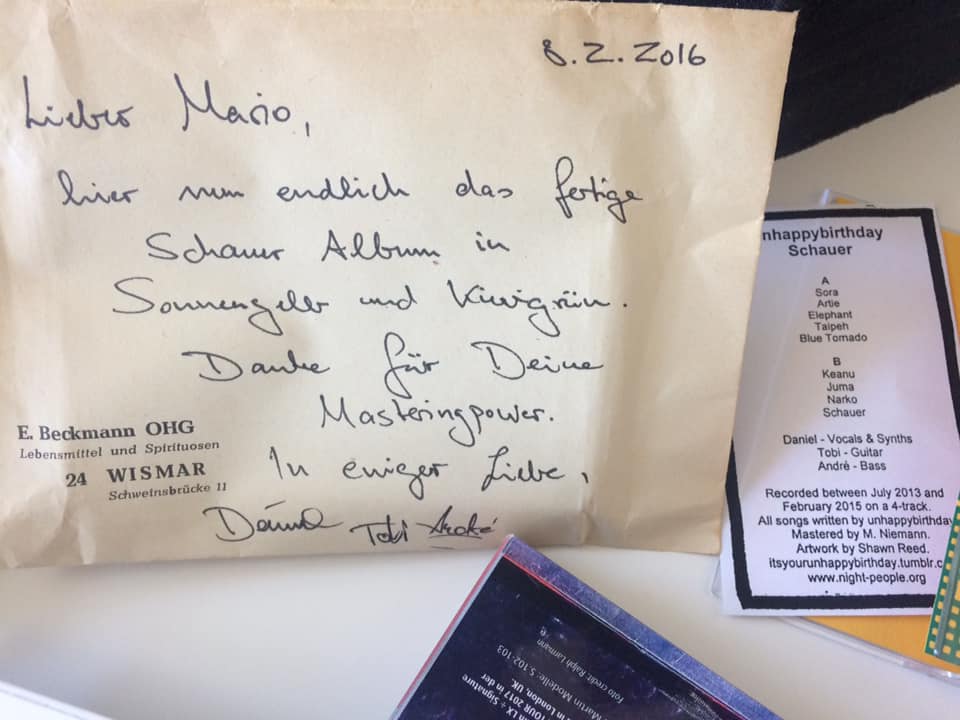 8.2.2016
Lieber Mario,
hier nun endlich das fertige
Schauer Album in
Sonnengelb und Kiwigrün.
Danke für Deine
Masteringpower.
In ewiger Liebe,
Daniel Tobi André
E. Beckmann OHG
Lebensmittel und Spirituosen
24 WISMAR
Schweinsbrücke 11
nhappybirthday
Schauer
A
Sora
Artie
Elephant
Taipeh
Blue Tornado
B
Keanu
Juma
Narko
Schauer
Daniel - Vocals & Synths
Tobi - Guitar
André - Bass
Recorded between July 2013 and
February 2015 on a 4-track.
All songs written by unhappybirthday
Mastered by M. Niemann.
Artwork by Shawn Reed.
itsyourunhappybirthday.tumblr.c
www.night-people.org
LX + Signature
TOUR 2017 in der
in London, UK.
Martin Modelle: S.102-103
Foto credit Ralph Larmann